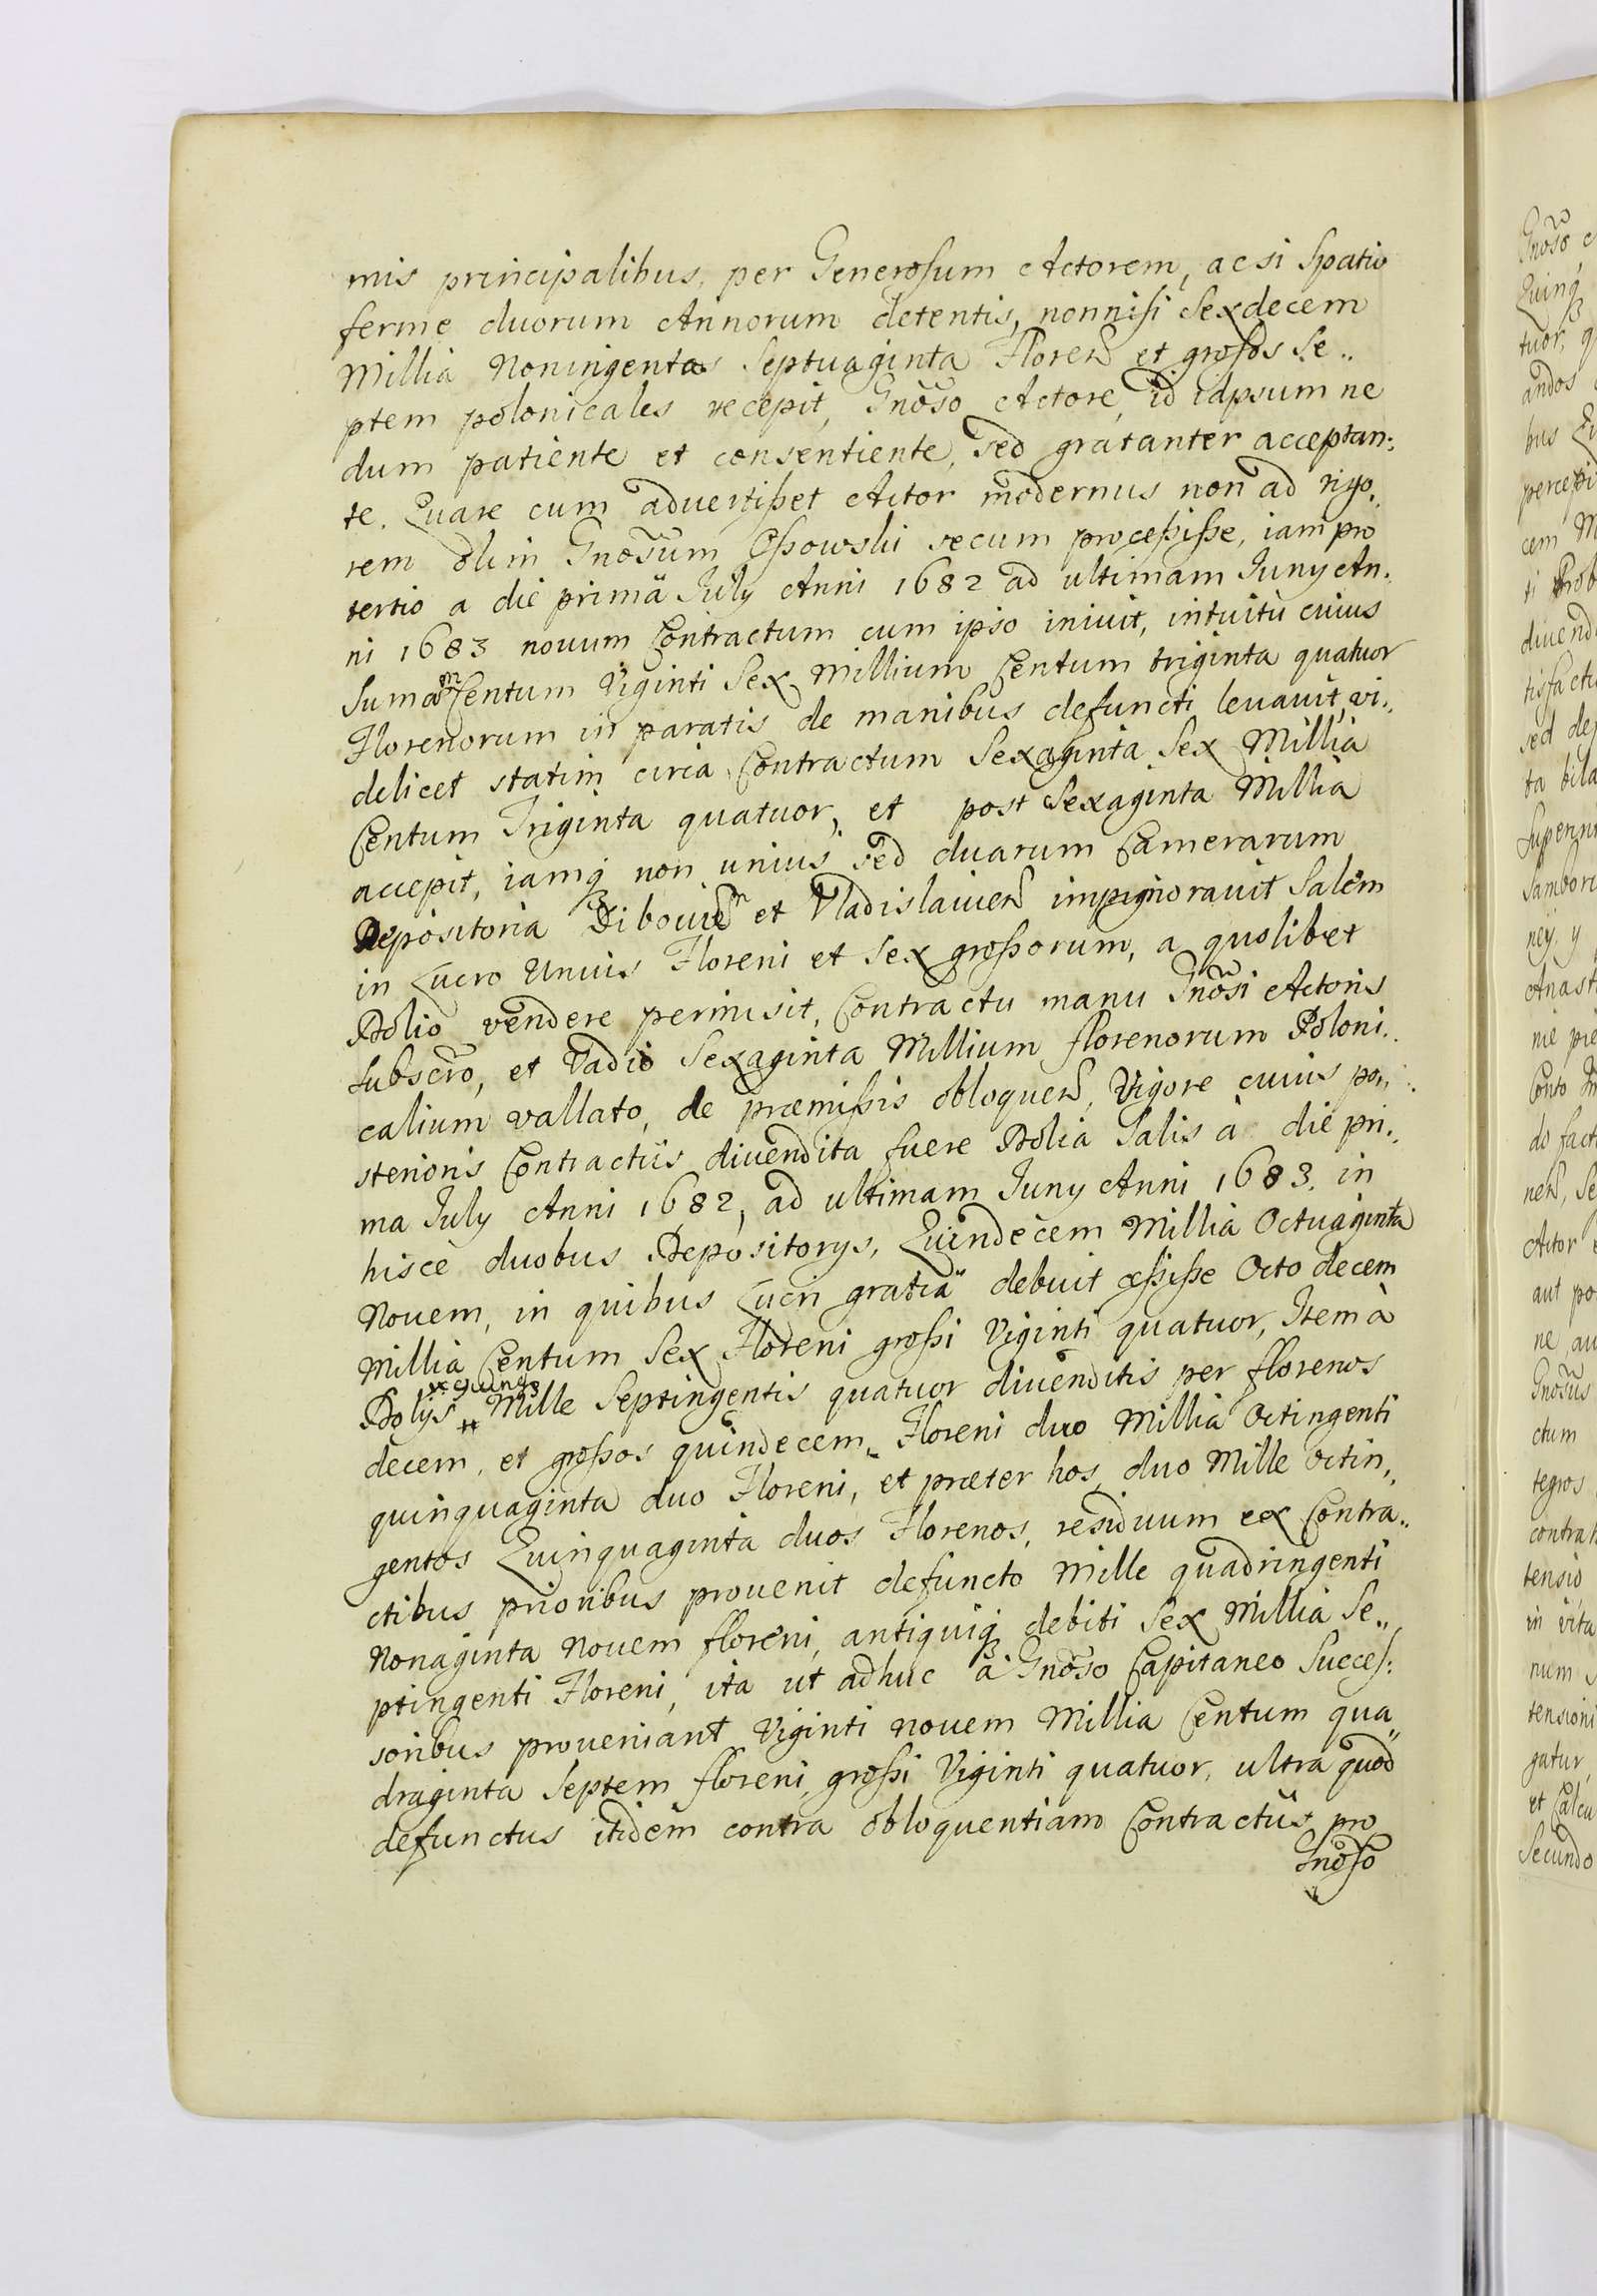 mis principalibus, per Generosum Actorem, ac si Spatio
ferme duorum Annorum detentis, nonnisi Sexdecem
Millia Noningentos Septuaginta Floren et grossos Se..
ptem polonicales recepit, Gnoso Actore, id idpsum ne
dum patiente et consentiente, sed gratanter acceptan:
te. Quare cum advertisset Actor modernus non ad rigo,
rem olim Gnosum Ossowski secum processisse, iam pro
tertio a die primä July Anni 1682 ad ultimam Juny An.
ni 1683 novum Contractum cum ipso iniuit, intuitu cuius
Sumam Centum Viginti Sex Millium Centum triginta quatuor
Florenorum in paratis de manibus defuncti leuauit, vi..
delicet statim circa Contractum Sexaginta Sex Millia
Centum Triginta quatuor, et post Sexaginta Millia
accepit, iamq non unius sed duarum Camerarum
Depositoria Dibouien et Vladislauien impignorauit Salem
in Lucro Unius Floreni et Sex grossorum, a quolibet
Dolio vendere permisit, Contractu manu Gnosi Actoris
subscro, et Vadio Sexaginta Millium florenorum Poloni..
calium vallato, de præmissis obloquen, Vigore cuius po,,
sterioris Contractus diuendita fuere Dolia Salis à die pri..
ma July Anni 1682, ad ultimam Juny Anni 1683. in
hisce duobus Depositorys, Quindecem Millia Octuaginta
Novem, in quibus Lucri gratiä debuit cessisse Octo decem
Millia Centum Sex Floreni grossi Viginti quatuor, Item à
Dolijs Mille Septingentis quatuor diuenditis per florenos
decem, et grossos quindecem, Floreni duo Millia Octingenti
quinquaginta duo Floreni, et præter hos, duo Mille Octin,,
gentos Quinquaginta duos Florenos, residuum ex Contra..
ctibus prioribus prouenit defuncto Mille quadringenti
Nonaginta Novem floreni, antiquiq debiti Sex Millia Se..
ptingenti Floreni, ita ut adhuc a Gnoso Capitaneo Succes:
soribus proueniant Viginti novem Millia Centum qua,,
draginta Septem floreni, grossi Viginti quatuor, ultra quod
defunctus itidem contra obloquentiam Contractus, pro
Gnoso